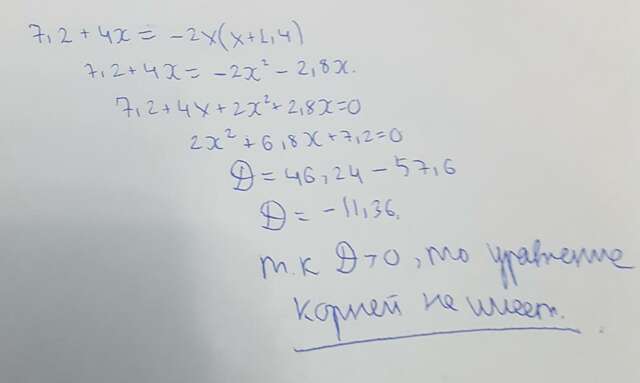 7,2 + 4x = -2x(x+1,4)
7,2 + 4x = -2x² - 2,8x.
7,2 + 4x + 2x² + 2,8x = 0
2x² + 6,8x + 7,2 = 0
D = 46,24 - 57,6
D = -11,36.
т.к D > 0, то уравнение
корней не имеет.